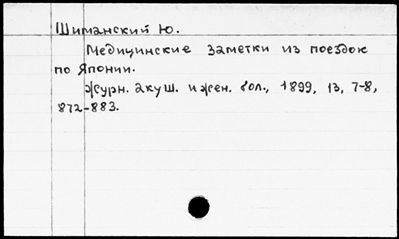 Шиманский Ю.
Медицинские заметки из поездок
по Японии.
Журн. акуш. и жен. бол., 1899, 13, 7-8,
872-883.